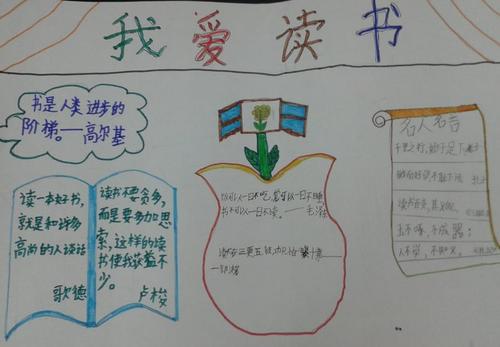 我爱读书
书是人类进步的
阶梯。——高尔基
读一本好书，
就是和许多
高尚的人谈话
歌德
读书不要贪多，
而是要多加思
索，这样的读
书使我获益不
少。
卢梭
饭可以一日不吃，觉可以一日不睡，
书不可以一日不读。——毛泽
名人名言
千里之行，始于足下
玉不琢，不成器；
人不学，不知义。